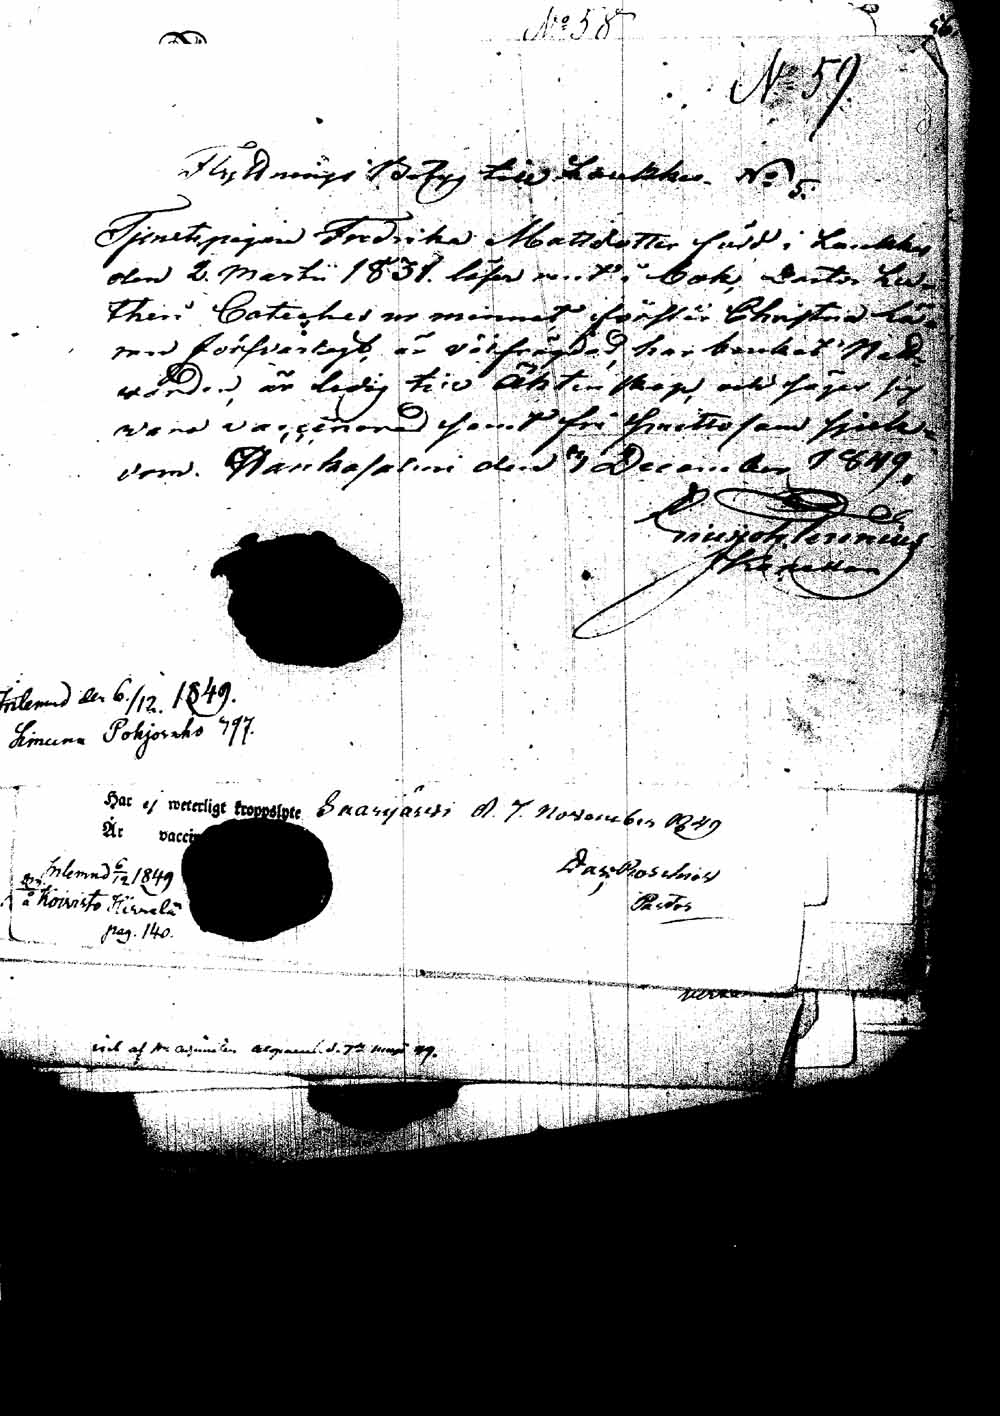 No 58
56
No 59
Flyttnings Betyg till Laukkas. No 5.
Tjenstepigan Fredrika Mattsdotter född i Laukkas
den 2. Martii 1831. läser rent i bok, Doctor Lu-
theri Cateches ur minnet, förstår Christna Lä-
ran försvarligt, är välfrägdad, har bevistat Natt-
varden, är ledig till Äktenskap, och säges sig
vara vaccinerad samt fri smittosam sjuk-
dom. Hankasalmi den 3 December 1849.
Inlemnad den 6/12. 1849.
Simuna Pohjoraho 797.
Har ej weterligt kroppslyte Saarijärvi d. 7. November 1849
Är vaccin
Inlemnad 6/12 1849
å Koivisto Hirvelä
pag. 140.
Pastor
af d. 7de 49.